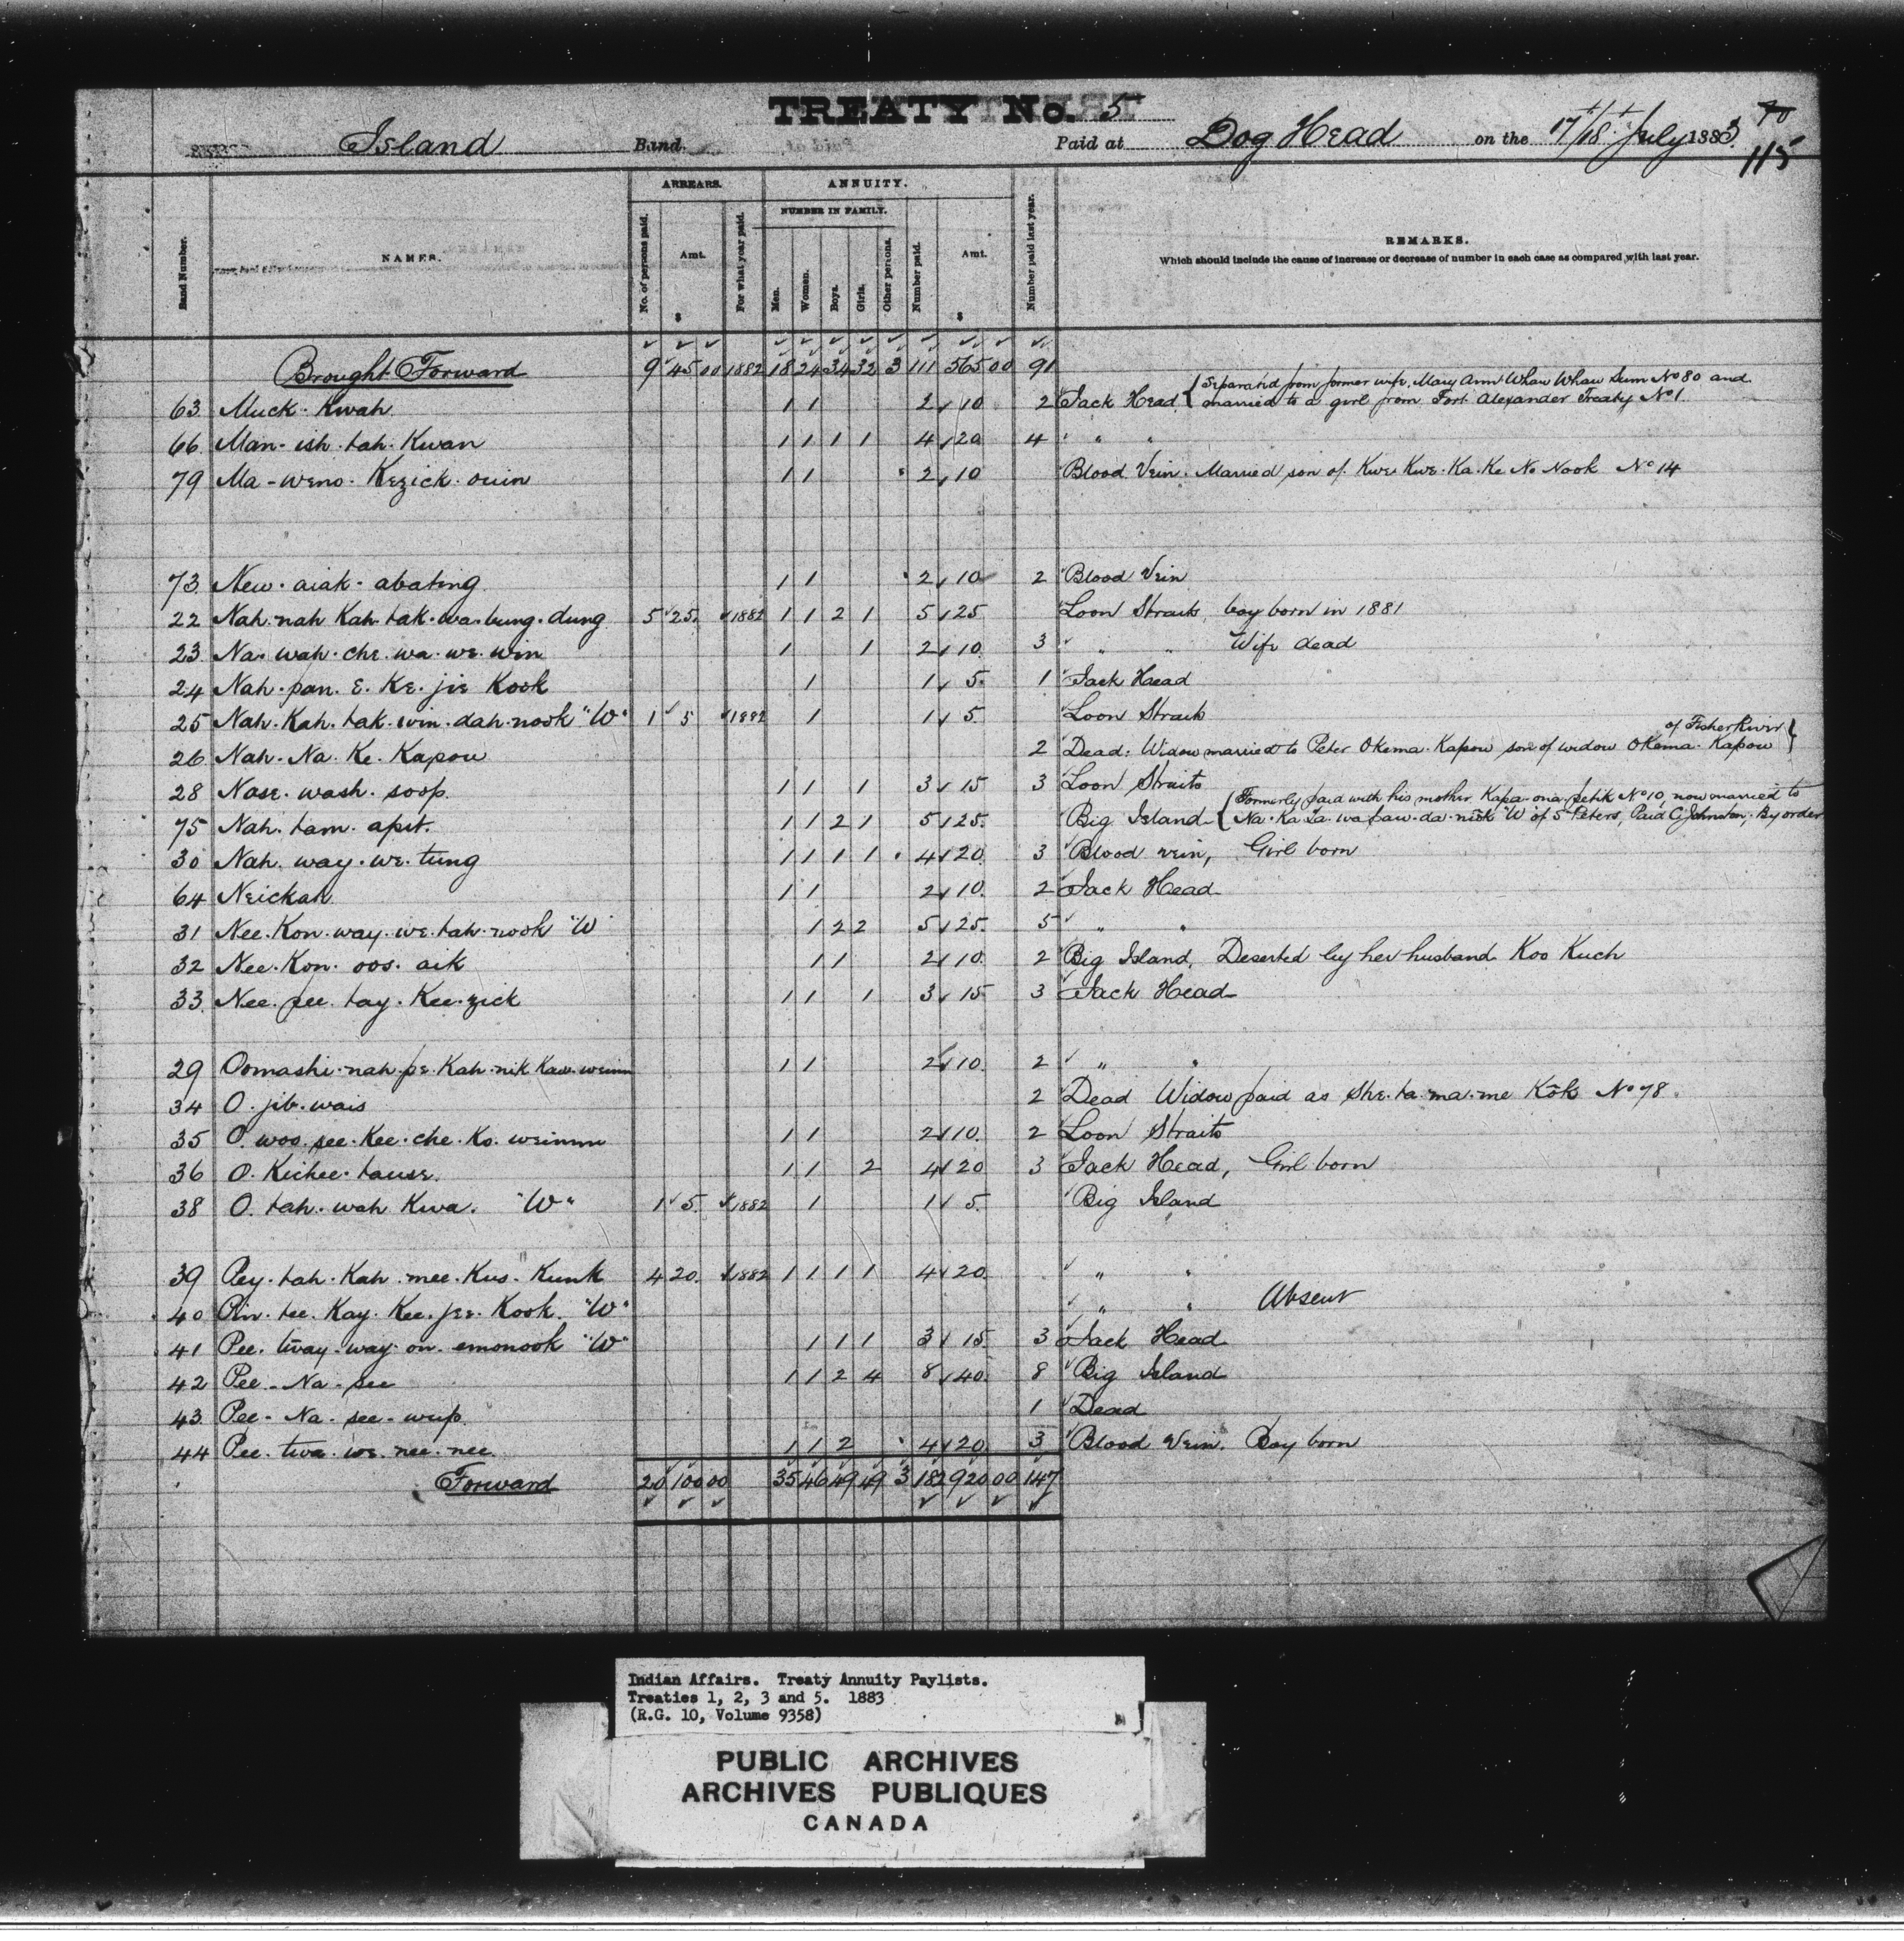 TREATY No. 5
Island Band. Paid at Dog Head on the 17/18 July 1883. 70
115
ARREARS. ANNUITY.
NUMBER IN FAMILY.
Band Number. NAMES. No. of persons paid. Amt. $ For what year paid. Men. Women. Boys. Girls. Other persons. Number paid. Amt. $ Number paid last year. REMARKS.
Which should include the cause of increase or decrease of number in each case as compared with last year.
Brought Forward 9 45 00 1882 18 24 34 32 3 111 565 00 91
63 Muck. Kwah. 1 1 2 10 2 Jack Head { Separated from former wife, Mary Ann Whaw Whaw Sum No 80 and
married to a girl from Fort Alexander Treaty No 1.
66 Man-ish.tah.Kwan 1 1 1 1 4 20 4 " "
79 Ma-weno-Kezick.ouin 1 1 2 10 Blood Vein. Married son of Kwe.Kwe.Ka.Ke No Nook No 14
73 New.aiak.abating 1 1 2 10 2 Blood Vein
22 Nah.nah Kah.tak.wa.bung.dung 5 25. 1882 1 1 2 1 5 25 Loon Straits, boy born in 1881
23 Na.wah.che.wa.we.win 1 1 2 10 3 " " Wife dead
24 Nah.pan.E.Ke.jie Kook 1 1 5. 1 Jack Head
25 Nah.Kah.tak.win.dah.nook "W" 1 5 1882 1 1 5 Loon Straits
of Fisher River }
26 Nah.Na.Ke.Kapow 2 Dead. Widow married to Peter Okema.Kapow son of widow Okema.Kapow
28 Nase.wash.soop. 1 1 1 3 15 3 Loon Straits
75 Nah.tam.apit. 1 1 2 1 5 25. Big Island { Formerly paid with his mother Kapa-ona-petik No 10, now married to
Na.Ka.La.wa.paw.da.nook "W" of St Peters, Paid C Johnston, By order
30 Nah.way.we.tung 1 1 1 1 4 20 3 Blood vein, Girl born
64 Neickah 1 1 2 10. 2 Jack Head
31 Nee.Kon.way.we.tah.nook "W" 1 2 2 5 25. 5 " "
32 Nee.Kon.oos.aik 1 1 2 10. 2 Big Island, Deserted by her husband Koo Kuch
33. Nee.pee.tay.Kee.zick 1 1 1 3 15 3 Jack Head
29 Oomashi.nah.pe.Kah.nik Kaw.weinin 1 1 2 10. 2 " "
34 O.jib.wais 2 Dead Widow paid as She.ta.ma.me Kok No 78.
35 O.woo.see.Kee.che.Ko.weinnu 1 1 2 10. 2 Loon Straits
36 O.Kichee.tause. 1 1 2 4 20 3 Jack Head, Girl born
38 O.tah.wah Kwa. "W" 1 5. 1882 1 1 5. Big Island
39 Pey.tah.Kah.mee.Kus.Kunk 4 20. 1882 1 1 1 1 4 20. " "
40 Pin.tee.Kay.Kee.jee.Kook. "W" " " Absent
41 Pee.tway.way.on.emonook "W" 1 1 1 3 15. 3 Jack Head
42 Pee-Na-see 1 1 2 4 8 40. 8 Big Island
43 Pee-Na-see-wup. 1 Dead
44 Pee.twa.we.nee.nee 1 1 2 4 20 3 Blood Vein. Boy born
Forward 20 100 00 35 46 49 49 3 182 920 00 147
Indian Affairs. Treaty Annuity Paylists.
Treaties 1, 2, 3 and 5. 1883
(R.G. 10, Volume 9358)
PUBLIC ARCHIVES
ARCHIVES PUBLIQUES
CANADA